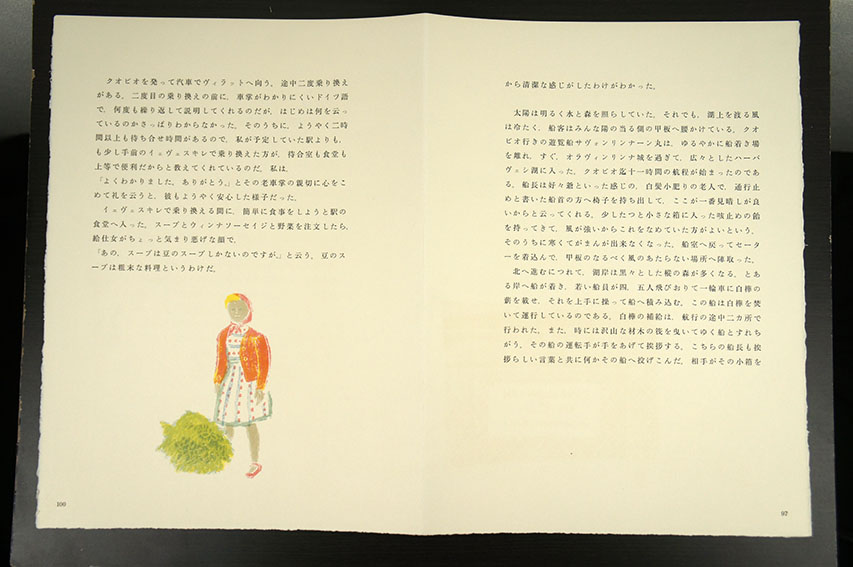 クオピオを発って汽車でヴィラットへ向う。途中二度乗り換え
がある。二度目の乗り換えの前に、車掌がわかりにくいドイツ語
で、何度も繰り返して説明してくれるのだが、はじめは何を云っ
ているのかさっぱりわからなかった。そのうちに、ようやく二時
間以上も待ち合せ時間があるので、私が予定していた駅よりも、
も少し手前のイェヴェスキレで乗り換えた方が、待合室も食堂も
上等で便利だからと教えてくれているのだ。私は、
「よくわかりました。ありがとう。」とその老車掌の親切に心をこ
めて礼を云うと、彼もようやく安心した様子だった。
イェヴェスキレで乗り換える間に、簡単に食事をしようと駅の
食堂へ入った。スープとウィンナソーセイジと野菜を注文したら、
給仕女がちょっと気まり悪げな顔で、
「あの、スープは豆のスープしかないのですが。」と云う。豆のス
ープは粗末な料理というわけだ。
100
から清潔な感じがしたわけがわかった。
太陽は明るく水と森を照らしていた。それでも、湖上を渡る風
は冷たく、船客はみんな陽の当る側の甲板へ腰かけている。クオ
ピオ行きの遊覧船サヴォンリンナーン丸は、ゆるやかに船着き場
を離れ、すぐ、オラヴィンリンナ城を過ぎて、広々としたハーパ
ヴェシ湖に入った。クオピオ迄十一時間の航程が始まったのであ
る。船長は好々爺といった感じの、白髪小肥りの老人で、通行止
めと書いた船首の方へ椅子を持ち出して、ここが一番見晴しが良
いからと云ってくれる。少したつと小さな箱に入った咳止めの飴
を持ってきて、風が強いからこれをなめていた方がよいという。
そのうちに寒くてがまんが出来なくなった。船室へ戻ってセータ
ーを着込んで、甲板のなるべく風のあたらない場所へ陣取った。
北へ進むにつれて、湖岸は黒々とした樅の森が多くなる。とあ
る岸へ船が着き、若い船員が四、五人飛びおりて一輪車に白樺の
薪を載せ、それを上手に操って船へ積み込む。この船は白樺を焚
いて運行しているのである。白樺の補給は、航行の途中二カ所で
行われた。また、時には沢山な材木の筏を曳いてゆく船とすれち
がう。その船の運転手が手をあげて挨拶する。こちらの船長も挨
拶らしい言葉と共に何かその船へ投げこんだ。相手がその小箱を
97